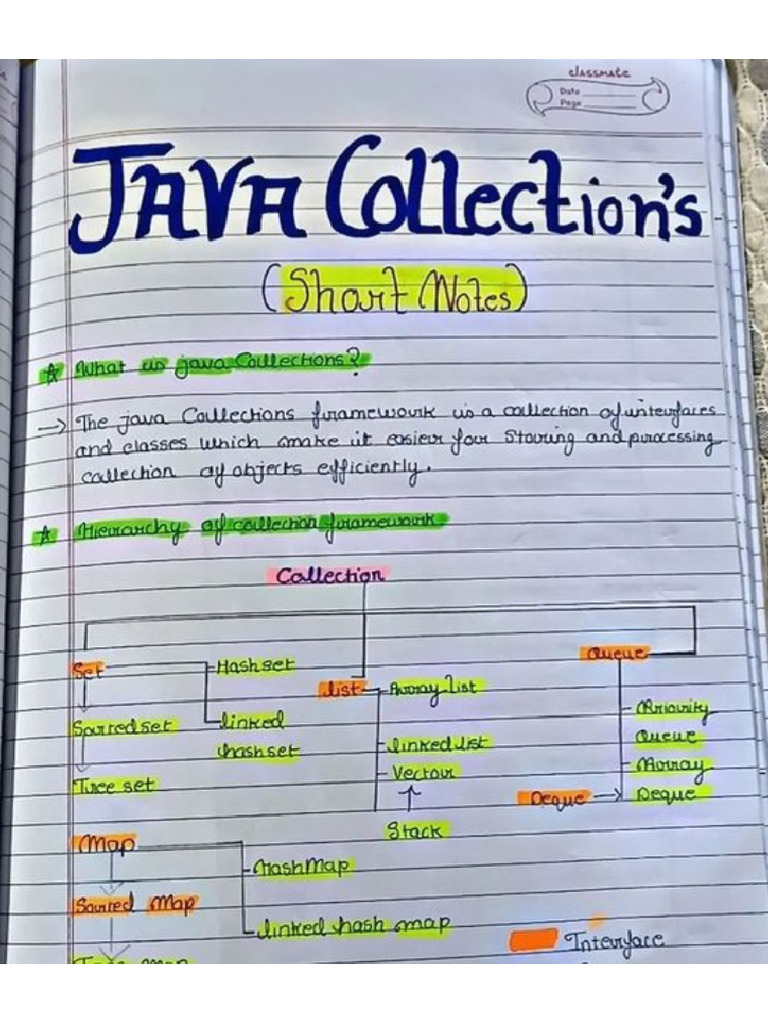 classmate
Date
Page
JAVA Collection's
(Short Notes)
☆ What is java Collections?
→ The java Collections framework is a collection of interfaces
and classes which make it easier for Storing and processing
collection of objects efficiently.
☆ Hierarchy of collection framework
Collection
Set
Hashset
list
Array List
Queue
Sourced set
linked
hashset
linked list
Vector
Priority
Queue
Tree set
Deque
Array
Deque
Stack
Map
HashMap
Sourred Map
linked hash map
Interface
Tree map